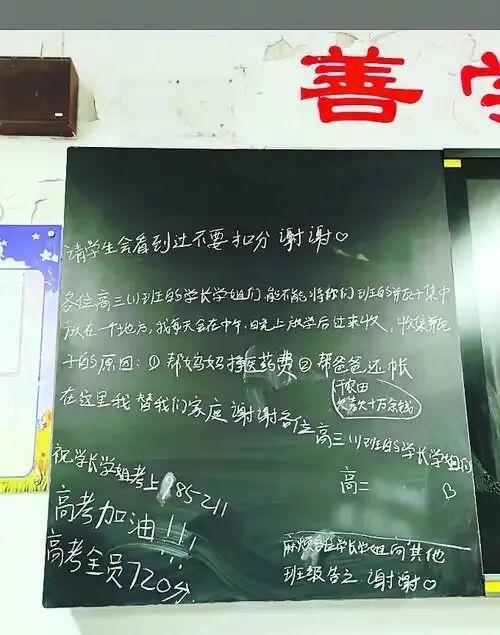 善学
请学生会看到过不要扣分 谢谢♡
各位高三(1)班的学长学姐们,能不能将你们班的瓶子集中
放在一个地方,我每天会在中午、晚上放学后过来收,收集瓶
子的原因:① 帮妈妈挣医药费 ② 帮爸爸还帐
(干农田
欠款十万余钱)
在这里我替我们家庭谢谢各位
高三(1)班的学长学姐们
高二 ♡
祝学长学姐考上985-211
高考加油!!!
高考全员720分.
麻烦各位学长学姐向其他
班级告之.谢谢♡